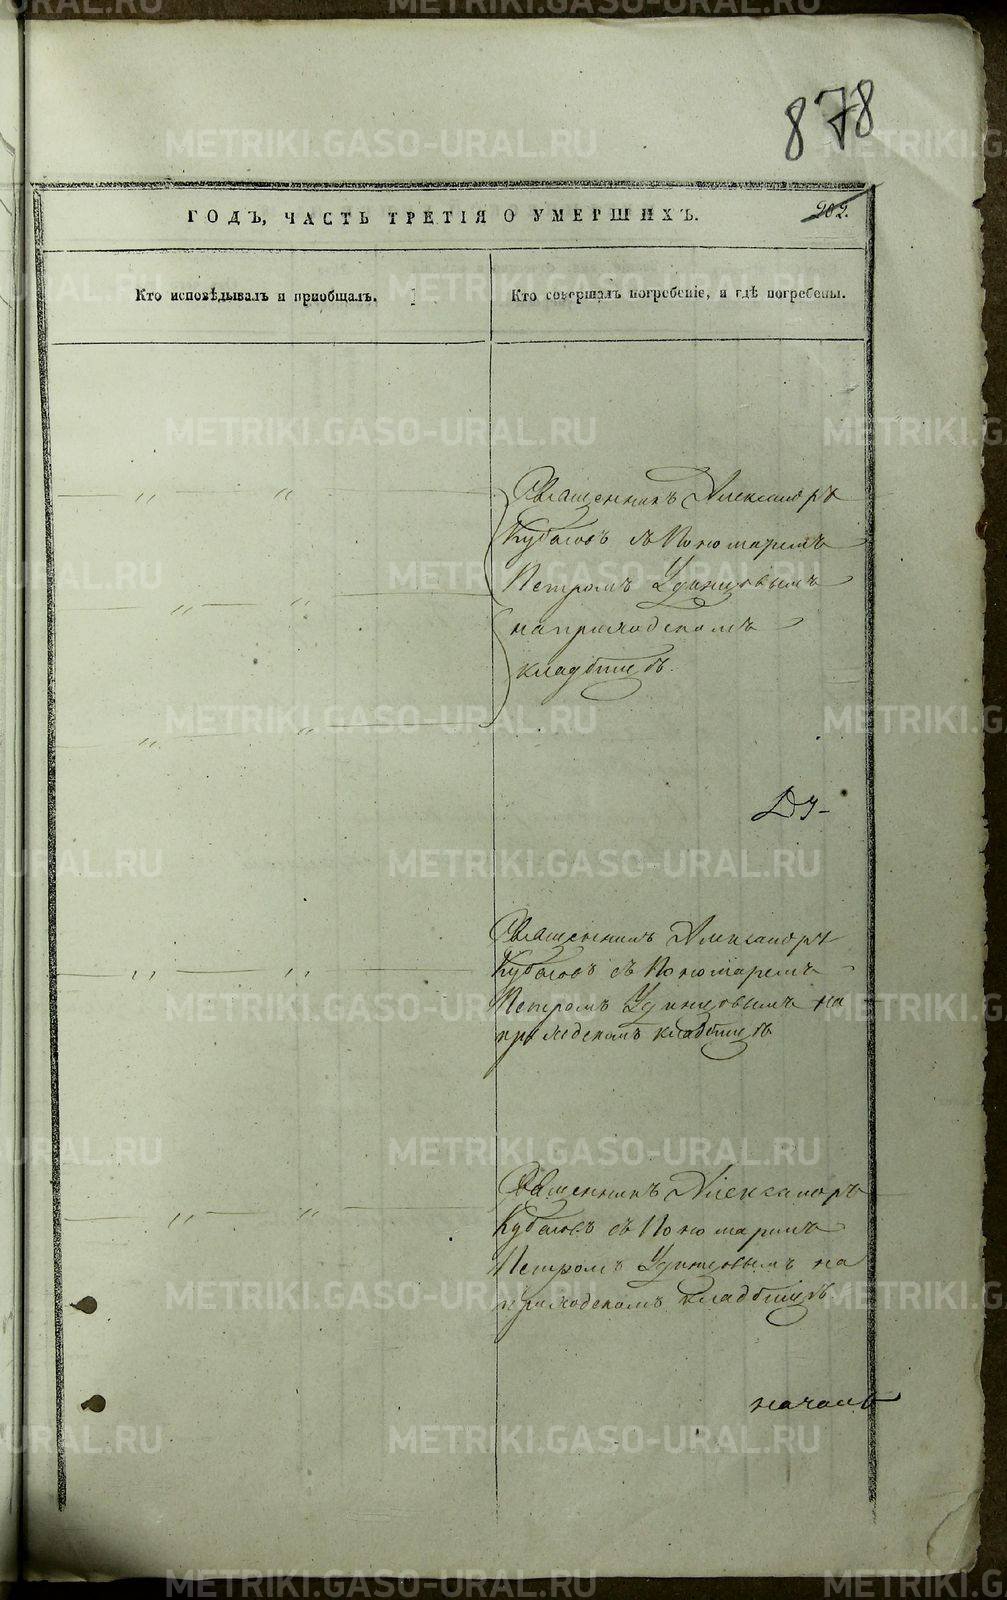 878
ГОДЪ, ЧАСТЬ ТРЕТІЯ О УМЕРШИХЪ.
202.
Кто исповѣдывалъ и пріобщалъ.
Кто совершалъ погребеніе, и гдѣ погребены.
Священникъ Александръ
Кубасовъ съ Пономаремъ
Петромъ Удинцовымъ
на приходскомъ
кладбищѣ.
Ду-
Священникъ Александръ
Кубасовъ съ Пономаремъ
Петромъ Удинцовымъ на
приходскомъ кладбищѣ
Священникъ Александръ
Кубасовъ съ Пономаремъ
Петромъ Удинцовымъ на
приходскомъ кладбищѣ.
METRIKI.GASO-URAL.RU